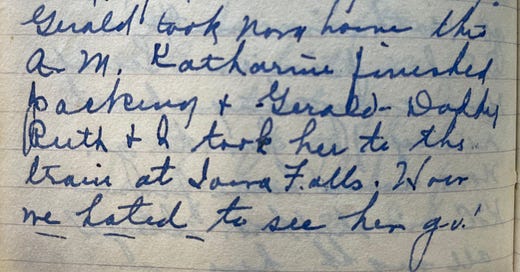 Gerald took Nora home this
A.M. Katharine finished
packing + Gerald - Daddy
Ruth + I took her to the
train at Iowa Falls. How
we hated to see her go!